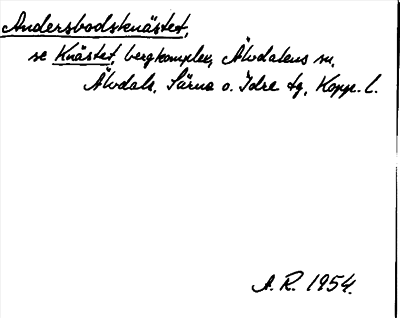 Andersbodsknästet,
se Knästet, bergkomplex, Älvdalens sn,
Älvdals, Särna o. Idre tg, Kopp. l.
A. R. 1954.